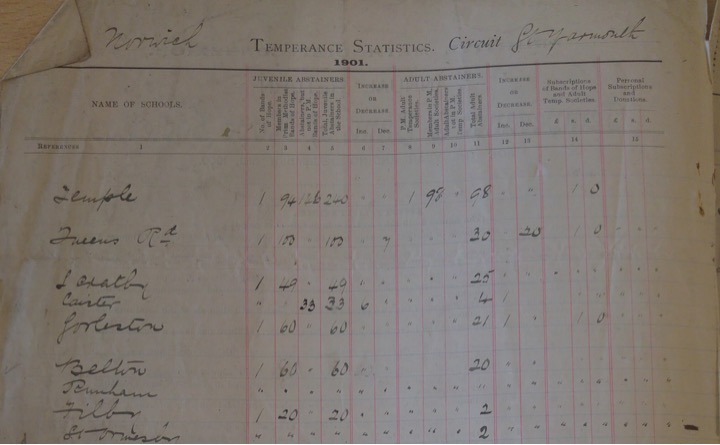 Norwich TEMPERANCE STATISTICS. Circuit Gt Yarmouth
1901.
JUVENILE ABSTAINERS INCREASE OR DECREASE ADULT ABSTAINERS. INCREASE OR DECREASE. Subscriptions of Bands of Hope and Adult Temp. Societies. Personal Subscriptions and Donations.
NAME OF SCHOOLS. No. of Bands of Hope. Members in Primitive Methodist Bands of Hope. Abstainers, but not in P.M. Bands of Hope. Total Juvenile Abstainers in the School Inc. Dec. P.M. Adult Temperance Societies. Members in P.M. Adult Societies. Adult Abstainers not in P.M. Temp. Societies. Total Adult Abstainers Inc. Dec. £ s. d. £ s. d.
REFERENCES 1 2 3 4 5 6 7 8 9 10 11 12 13 14 15
Temple 1 94 126 220 " " 1 98 " 98 " " 1 0
Queens Rd 1 103 " 103 " 7 " " " 30 " 20 1 0
1 49 " 49 " " " " " 25
Caister " " 33 33 6 " " " " 4 1
Gorleston 1 60 " 60 " " " " " 21 1 " 1 0
Belton 1 60 " 60 " " " " 20 " "
" " " " " " " " " "
Filby 1 20 " 20 " " " " " 2 " "
" " " " " " " " " 2 " "